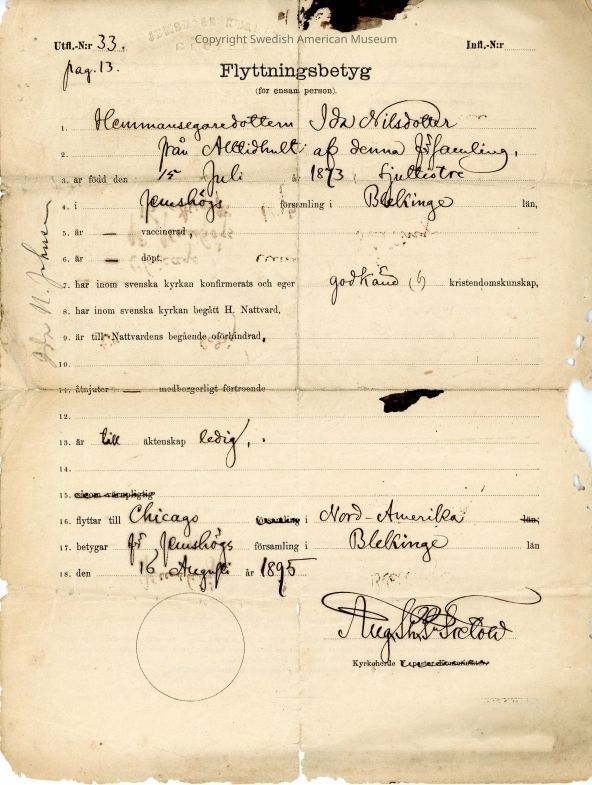 Copyright Swedish American Museum
Utfl.-N:r 33. Infl.-N:r
pag. 13.
Flyttningsbetyg
(för ensam person).
1. Hemmansegaredottern Ida Nilsdotter
2. från Alltidhult af denna församling,
3. är född den 15 Juli år 1873, sjuttiotre
4. i Jemshögs församling i Blekinge län,
5. är — vaccinerad,
6. är — döpt.
7. har inom svenska kyrkan konfirmerats och eger godkänd kristendomskunskap,
8. har inom svenska kyrkan begått H. Nattvard,
9. är till Nattvardens begående oförhindrad,
10.
11. åtnjuter — medborgerligt förtroende
12.
13. är till äktenskap ledig,
14.
15. såsom värnpligtig
16. flyttar till Chicago församling i Nord-Amerika län;
17. betygar för Jemshögs församling i Blekinge län
18. den 16 Augusti år 1895
Kyrkoherde
Ida N. Johnson